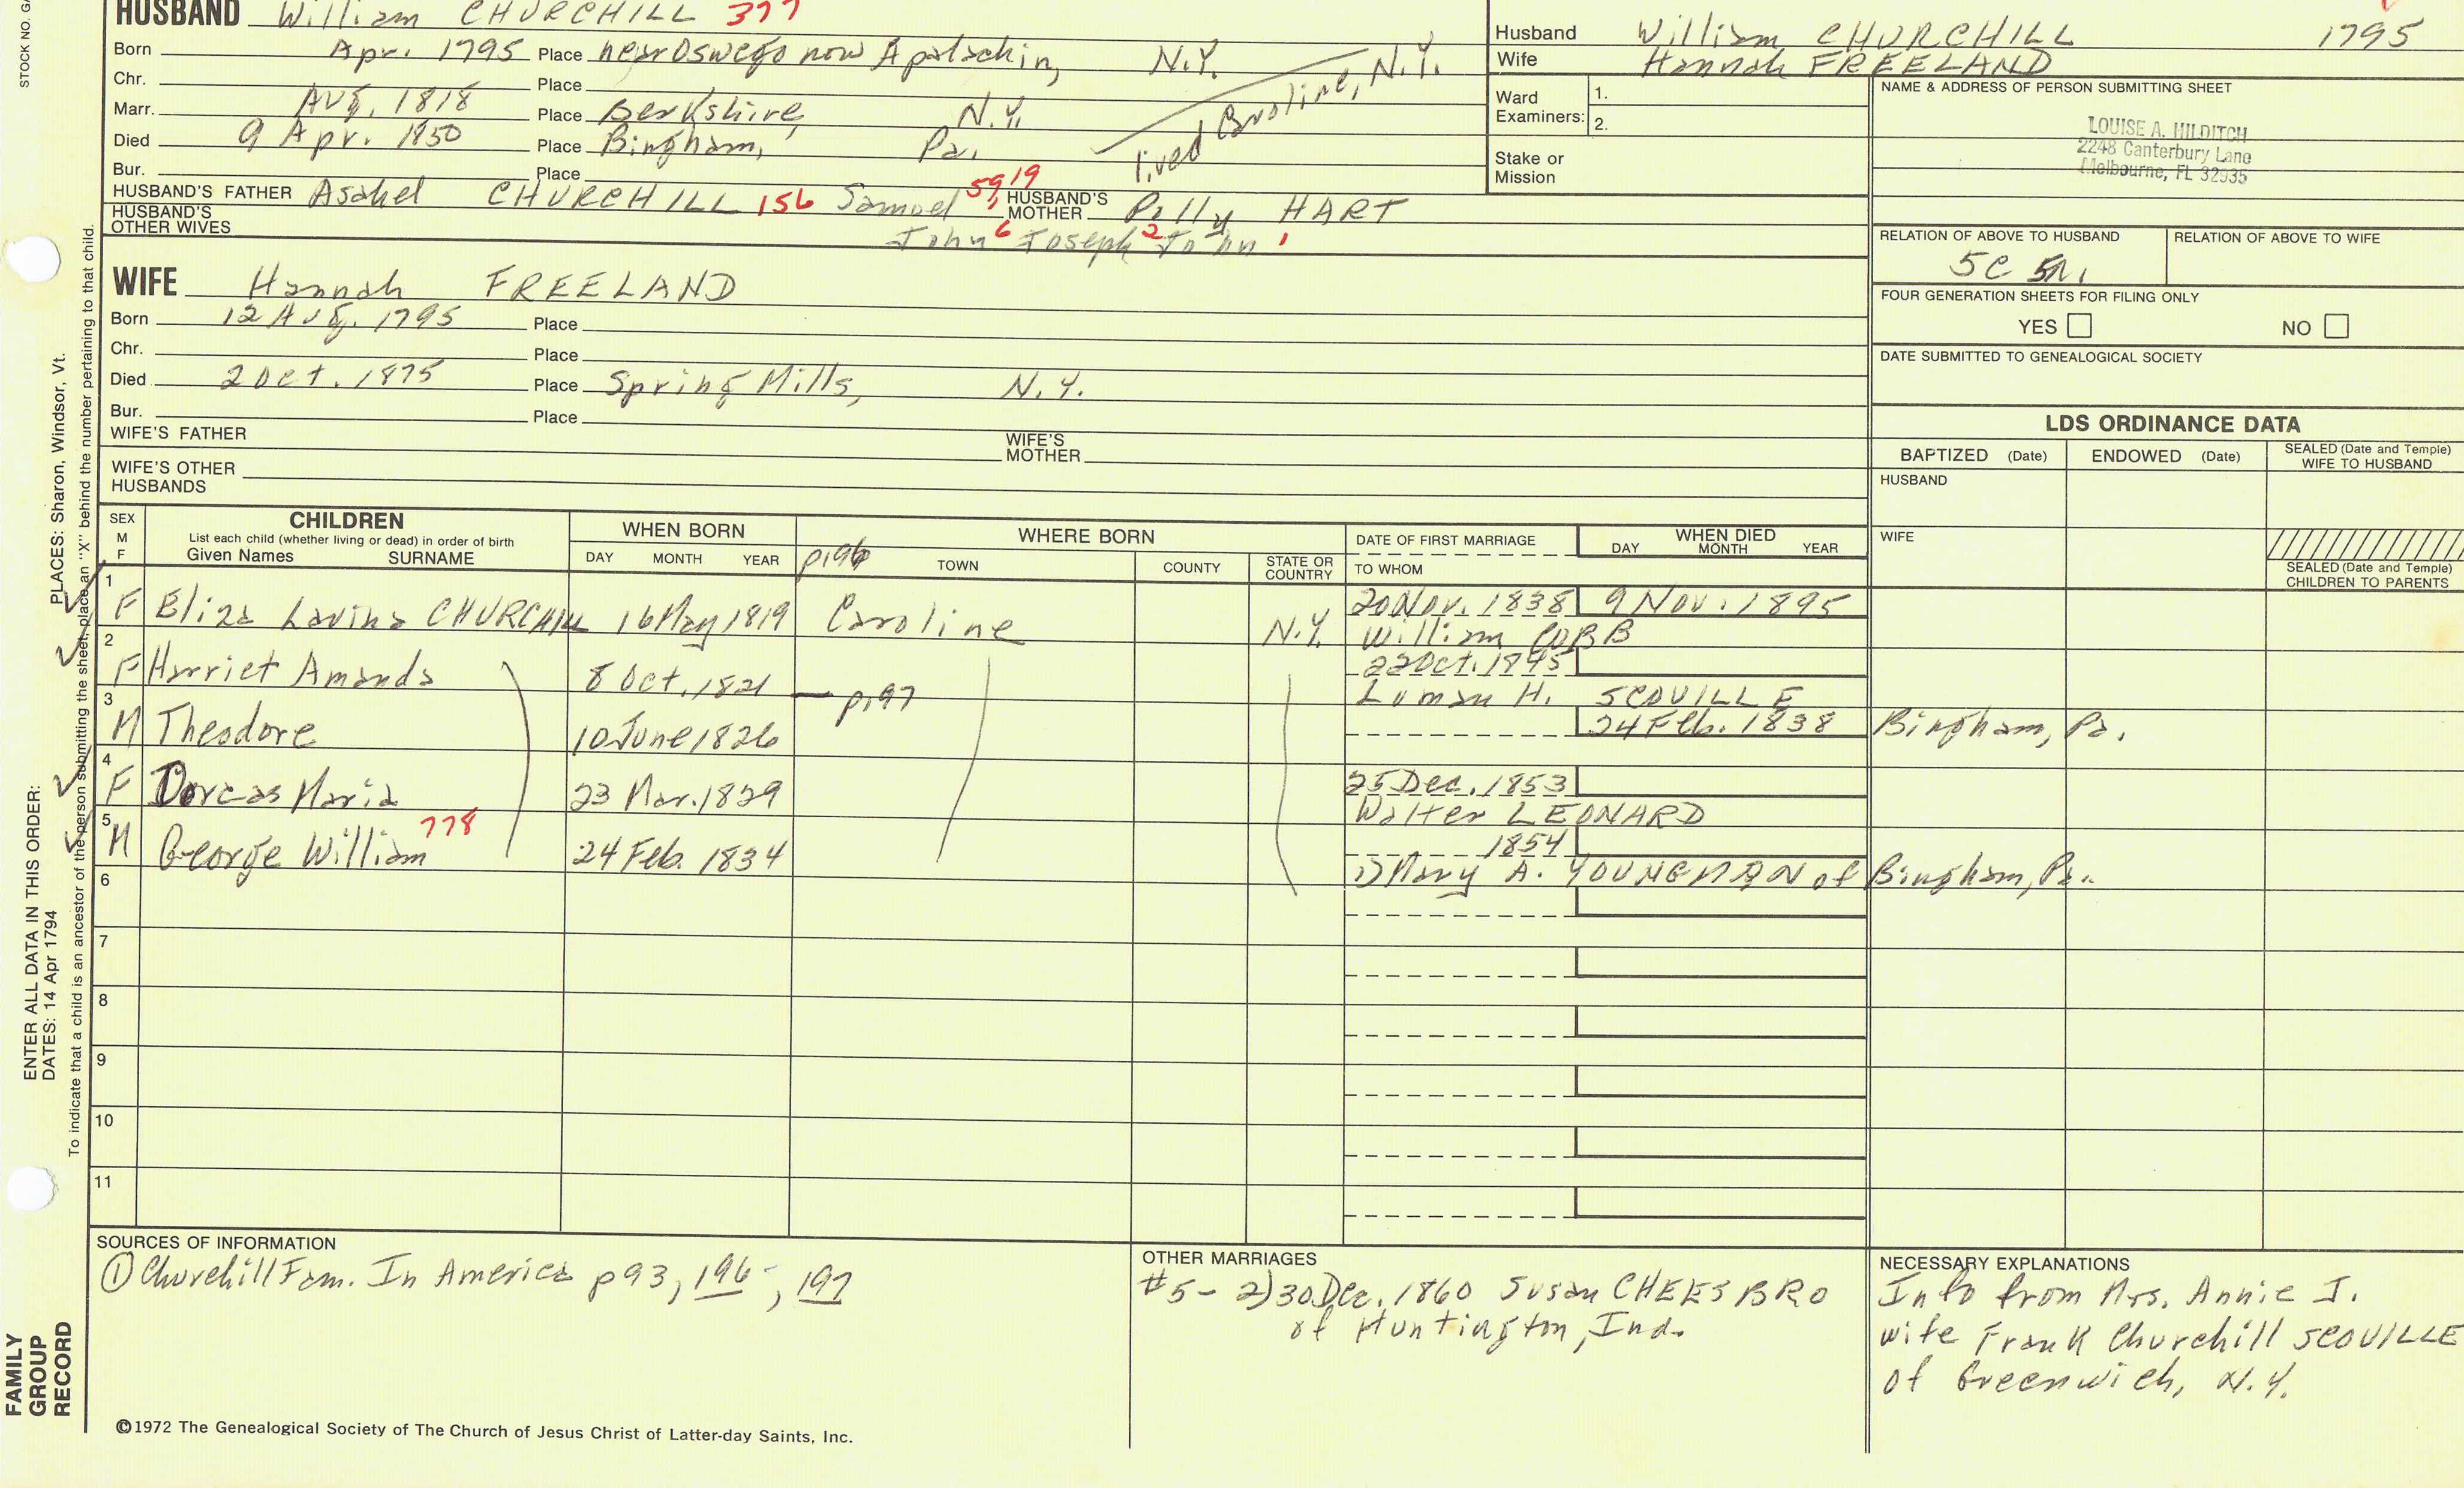 STOCK NO. GA
HUSBAND William CHURCHILL 377
Born Apr. 1795 Place near Oswego now Apalachin, N.Y.
Chr. Place
Marr. Aug. 1818 Place Berkshire, N.Y.
Died 9 Apr. 1850 Place Bingham, Pa.
lived Caroline, N.Y.
Bur. Place
HUSBAND'S FATHER Asahel CHURCHILL 156 Samuel 59, 19 HUSBAND'S MOTHER Polly HART
HUSBAND'S OTHER WIVES John 6 Joseph 2 John 1
WIFE Hannah FREELAND
Born 12 Aug. 1795 Place
Chr. Place
Died 2 Oct. 1875 Place Spring Mills, N.Y.
Bur. Place
WIFE'S FATHER WIFE'S MOTHER
WIFE'S OTHER HUSBANDS
Husband William CHURCHILL 1795
Wife Hannah FREELAND
Ward Examiners: 1.
2.
Stake or Mission
NAME & ADDRESS OF PERSON SUBMITTING SHEET
LOUISE A. HILDITCH
2248 Canterbury Lane
Melbourne, FL 32935
RELATION OF ABOVE TO HUSBAND RELATION OF ABOVE TO WIFE
5C 5R,
FOUR GENERATION SHEETS FOR FILING ONLY
YES NO
DATE SUBMITTED TO GENEALOGICAL SOCIETY
LDS ORDINANCE DATA
BAPTIZED (Date) ENDOWED (Date) SEALED (Date and Temple) WIFE TO HUSBAND
HUSBAND
WIFE
SEALED (Date and Temple) CHILDREN TO PARENTS
SEX M F
CHILDREN
List each child (whether living or dead) in order of birth
Given Names SURNAME
WHEN BORN
DAY MONTH YEAR
WHERE BORN
p196 TOWN COUNTY STATE OR COUNTRY
DATE OF FIRST MARRIAGE
TO WHOM
WHEN DIED
DAY MONTH YEAR
1 F Eliza Lavina CHURCHILL 16 May 1819 Caroline N.Y. 20 Nov. 1838 9 Nov. 1895
William COBB
2 F Harriet Amanda 8 Oct. 1821 — p197 22 Oct. 1845
Luman H. SCOVILLE
3 M Theodore 10 June 1826 24 Feb. 1838 Bingham, Pa.
4 F Dorcas Maria 23 Mar. 1829 25 Dec. 1853
Walter LEONARD
5 M George William 778 24 Feb. 1834 1854
1) Mary A. YOUNGMAN of Bingham, Pa.
6
7
8
9
10
11
SOURCES OF INFORMATION
① Churchill Fam. In America p93, 196-, 197
OTHER MARRIAGES
#5 - 2) 30 Dec. 1860 Susan CHEESBRO
of Huntington, Ind.
NECESSARY EXPLANATIONS
Info from Mrs. Annie J.
wife Frank Churchill SCOVILLE
of Greenwich, N.Y.
©1972 The Genealogical Society of The Church of Jesus Christ of Latter-day Saints, Inc.
FAMILY GROUP RECORD
ENTER ALL DATA IN THIS ORDER:
DATES: 14 Apr 1794
PLACES: Sharon, Windsor, Vt.
To indicate that a child is an ancestor of the person submitting the sheet, place an "X" behind the number pertaining to that child.